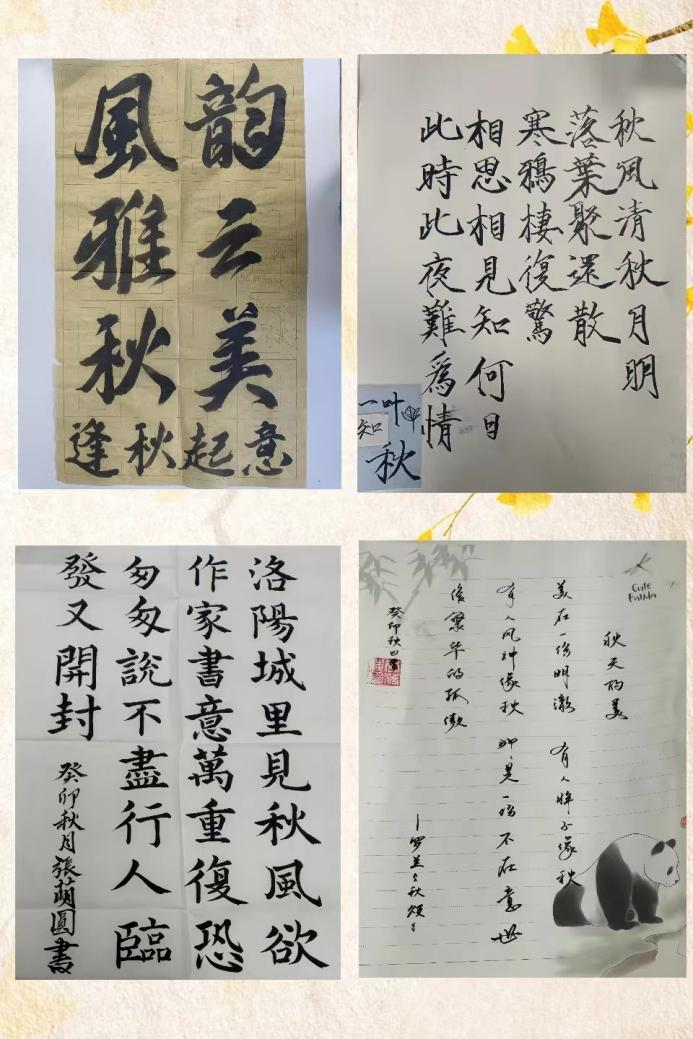 韵云美
風雅秋
逢秋起意
秋風清秋月明
落葉聚還散
寒鴉棲復驚
相思相見知何日
此時此夜難爲情
一叶
知
秋
洛陽城里見秋風欲
作家書意萬重復恐
匆匆說不盡行人臨
發又開封
癸卯秋月張萌圓書
Cute
Panda
秋天的美
美在一份明澈 有人眸子像秋
有人风神像秋 那是一份不在意世
俗繁华的孤傲
—罗兰《秋颂》
癸卯秋日